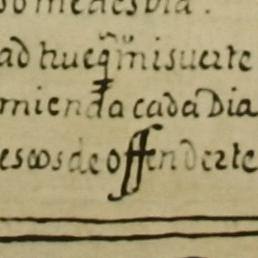 so me des vía.
ad hue q̃ mi suerte
mienda cada Dia
eseos de offenderte